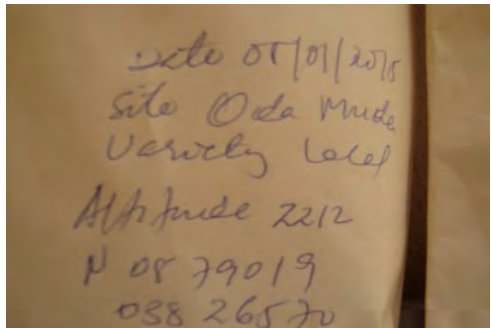 Date 08/01/2015
Site Oda Muda
Variety Local
Altitude 2212
N 08 79019
038 26570